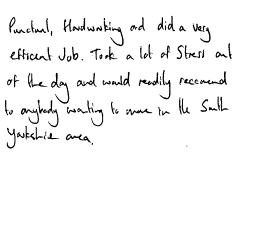 Punctual, Hardworking and did a very
efficient Job. Took a lot of Stress out
of the day and would readily reccomend
to anybody wanting to move in the South
Yorkshire area.